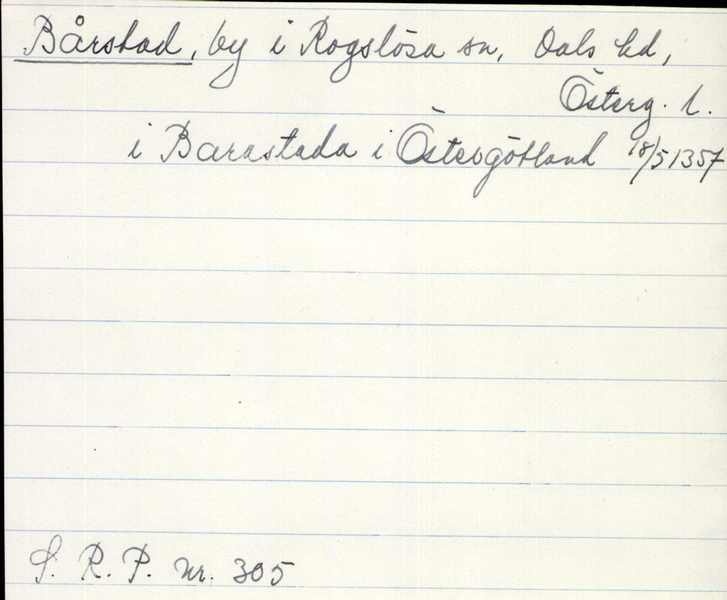 Bårstad, by i Rogslösa sn, Dals hd,
Österg. l.
i Barastada i Östergötland 18/5 1357
S. R. P. nr. 305